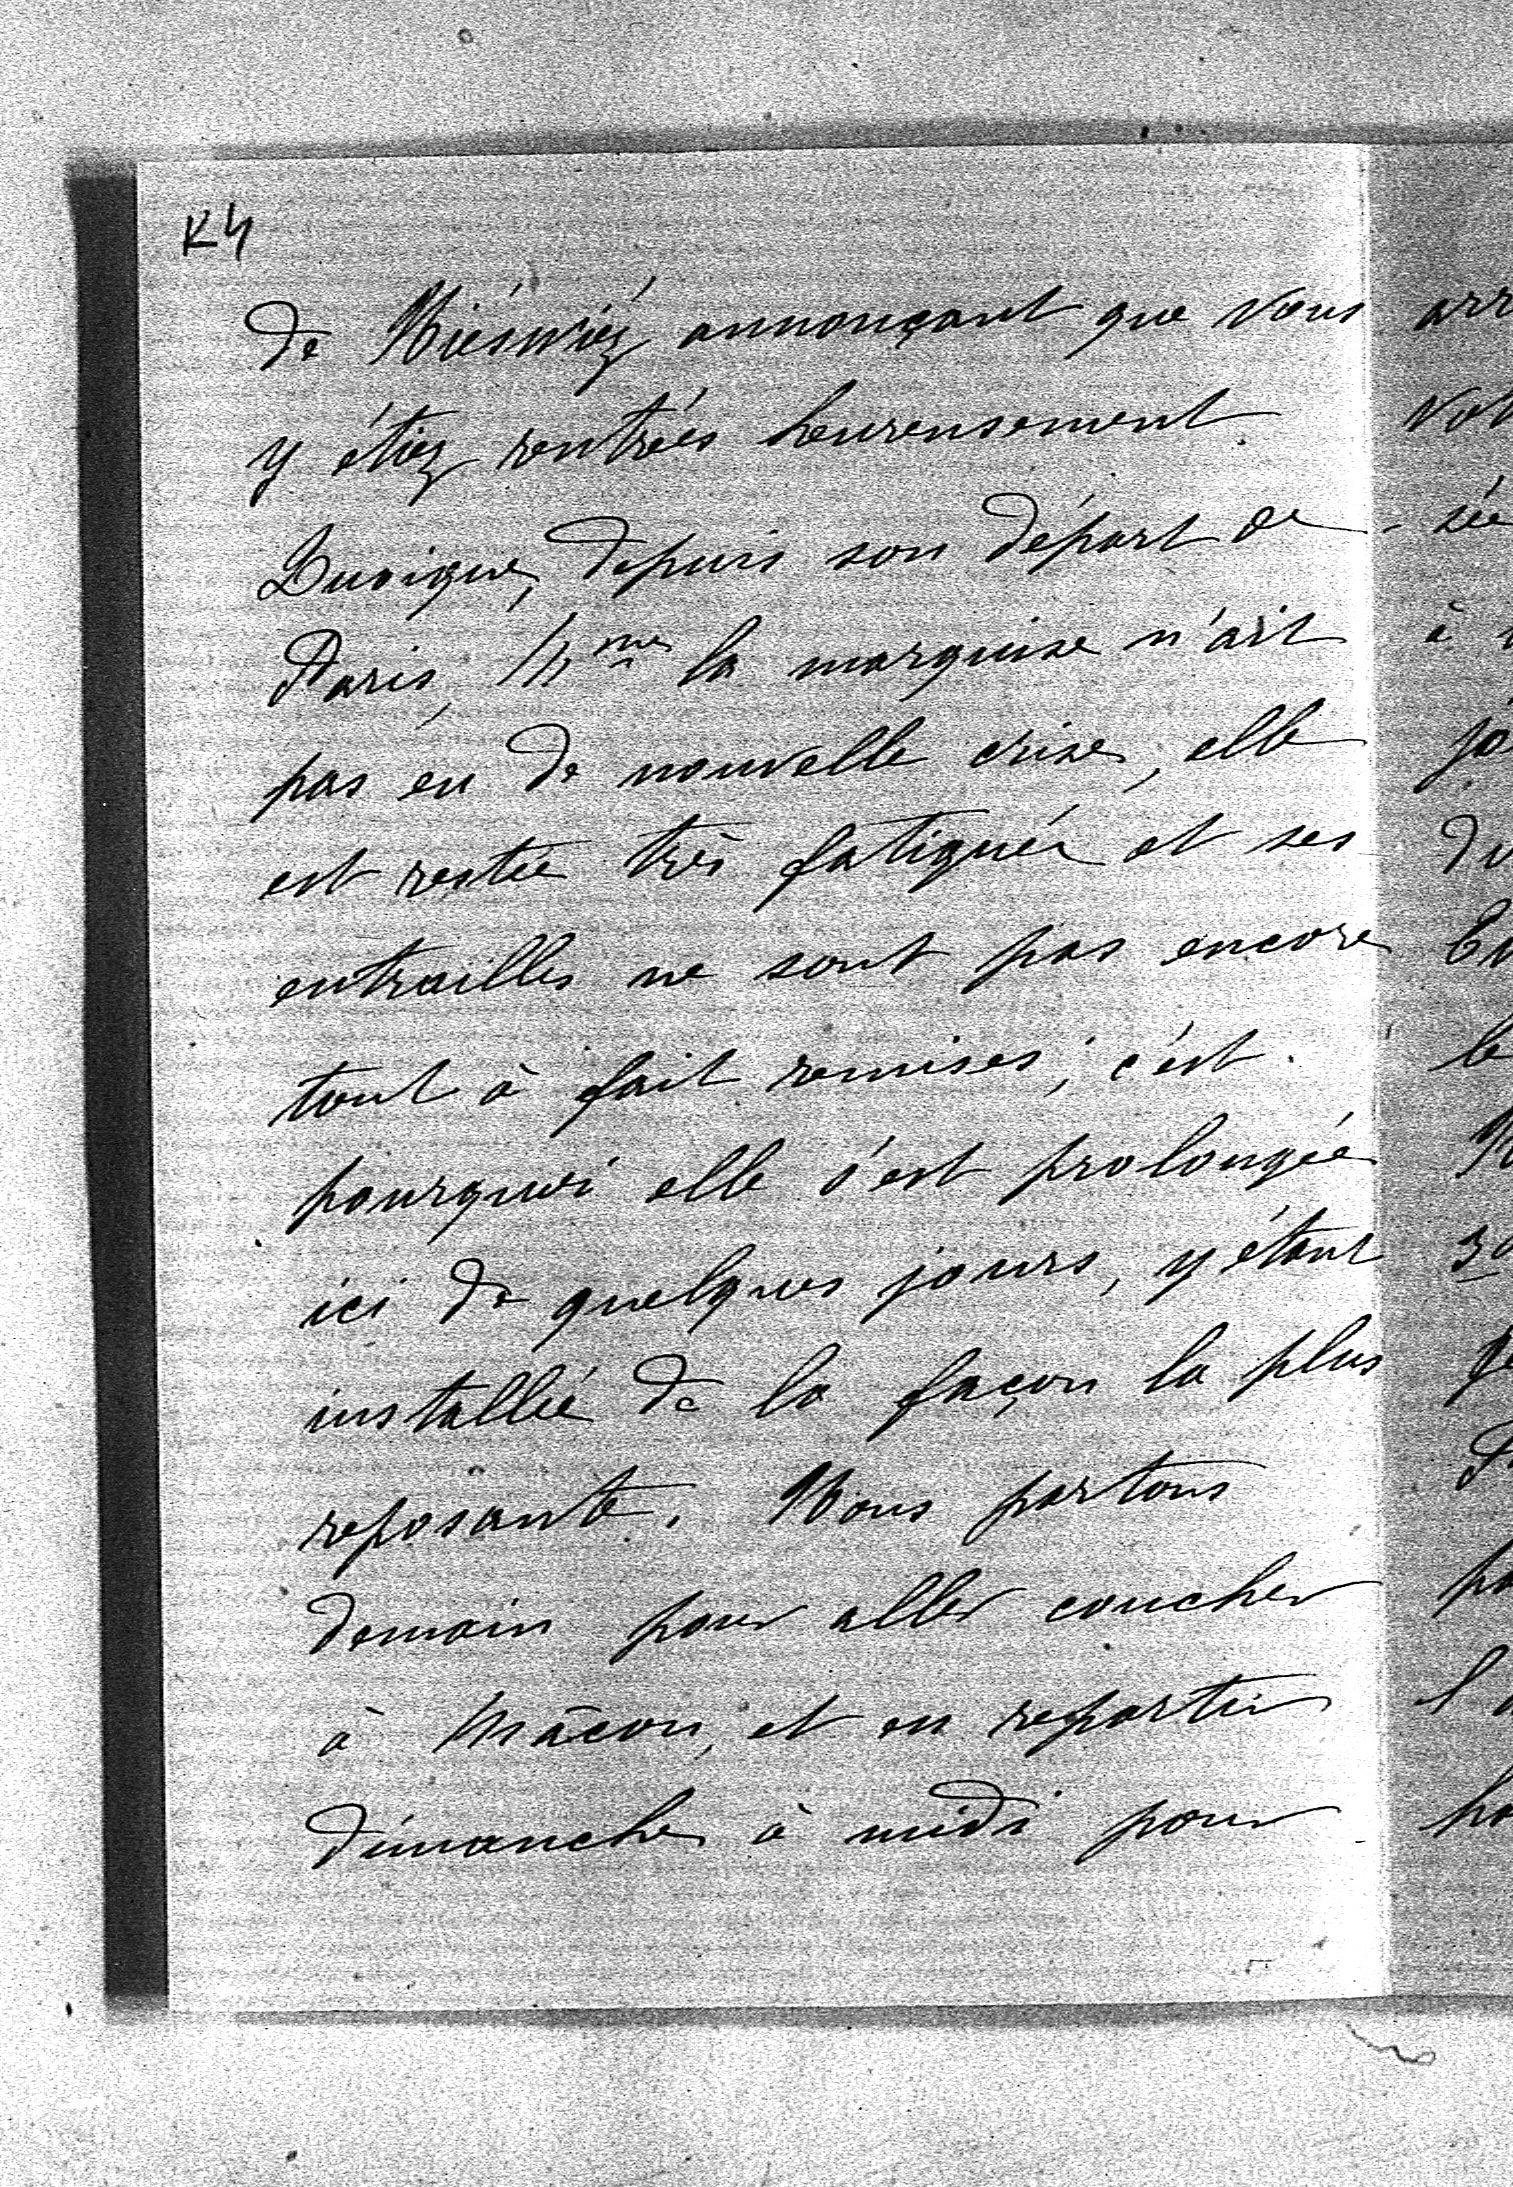 K4
de Niéswiéz annonçant que vous
y étiez rentrées heureusement.
Quoique, depuis son départ de
Paris, Mme la marquise n'ait
pas eu de nouvelle crise, elle
est restée très fatiguée et ses
entrailles ne sont pas encore
tout à fait remises; c'est
pourquoi elle s'est prolongée
ici de quelques jours, y étant
installée de la façon la plus
reposante. Nous partons
demain pour aller coucher
à Mâcon, et en repartir
dimanche à midi pour